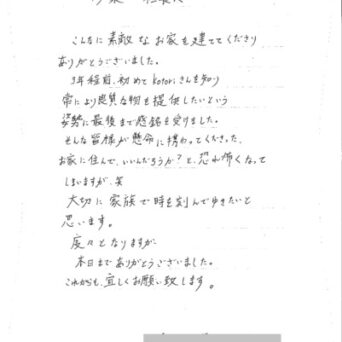 こんなに素敵なお家を建ててくださり
ありがとうございました。
3年程前、初めてkotoriさんを知り
常により良質な物を提供したいという
姿勢に最後まで感銘を受けました。
そんな皆様が懸命に携わってくださった
お家に住んで、いいんだろうか?と、恐れ怖くなって
しまいますが、笑
大切に家族で時を刻んでゆきたいと
思います。
度々となりますが
本日までありがとうございました。
これからも、宜しくお願い致します。